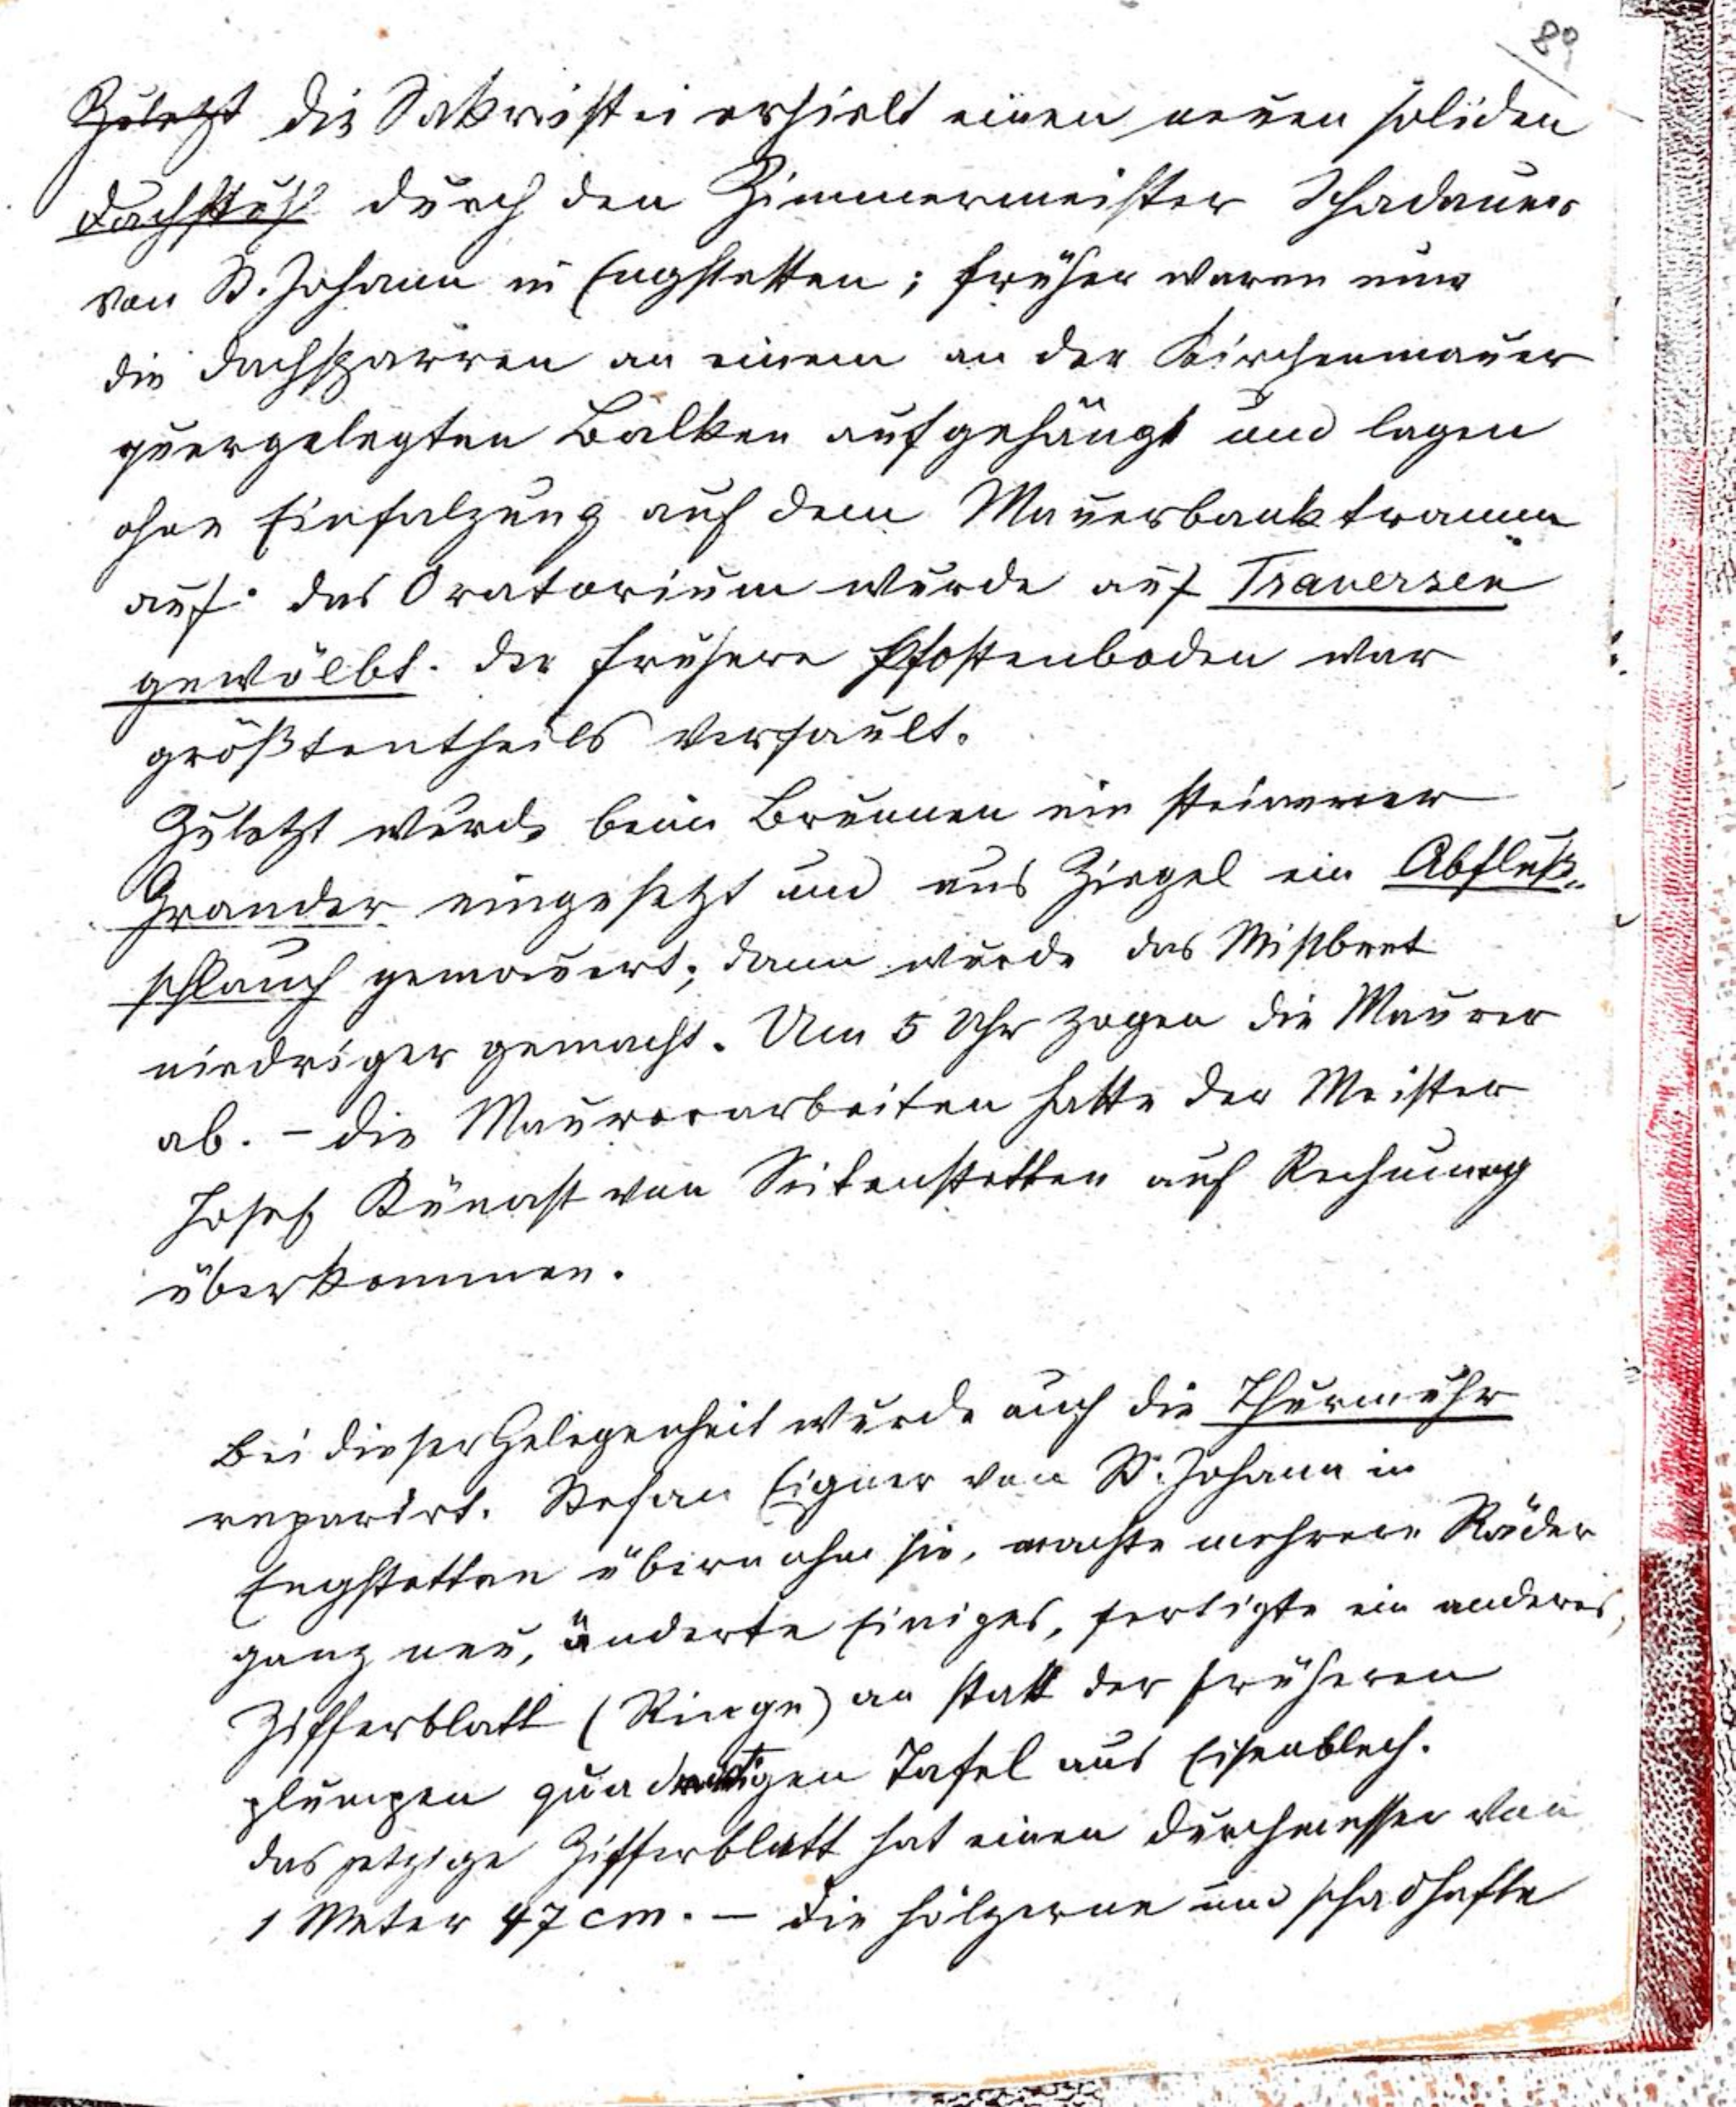 89
Zuletzt die Sakristei erhielt einen neuen soliden
Dachstuhl durch den Zimmermeister Schadauer
von St. Johann in Engstetten; früher waren nur
die Dachsparren an einem an der Kirchenmauer
quergelegten Balken aufgehängt und lagen
ohne Einfalzung auf dem Mauerbanktramm
auf. Das Oratorium wurde auf Traversen
gewölbt. Der frühere Pfostenboden war
größtentheils verfault.
Zuletzt wurde beim Brunnen ein steinerner
Grander eingesetzt und aus Ziegel ein Abfluß-
schlauch gemauert; dann wurde das Mistbeet
niedriger gemacht. Um 5 Uhr zogen die Maurer
ab. – Die Maurerarbeiten hatte der Meister
Josef Künast von Seitenstetten auf Rechnung
überkommen.
Bei dieser Gelegenheit wurde auch die Thurmuhr
reparirt. Stefan Eigner von St. Johann in
Engstetten übernahm sie, machte mehrere Räder
ganz neu, änderte Einiges, fertigte ein anderes,
Zifferblatt (Ringe) an statt der früheren
plumpen quadratigen Tafel aus Eisenblech.
Das jetzige Zifferblatt hat einen Durchmesser von
1 Meter 47 cm. – Die hölzerne und schadhafte